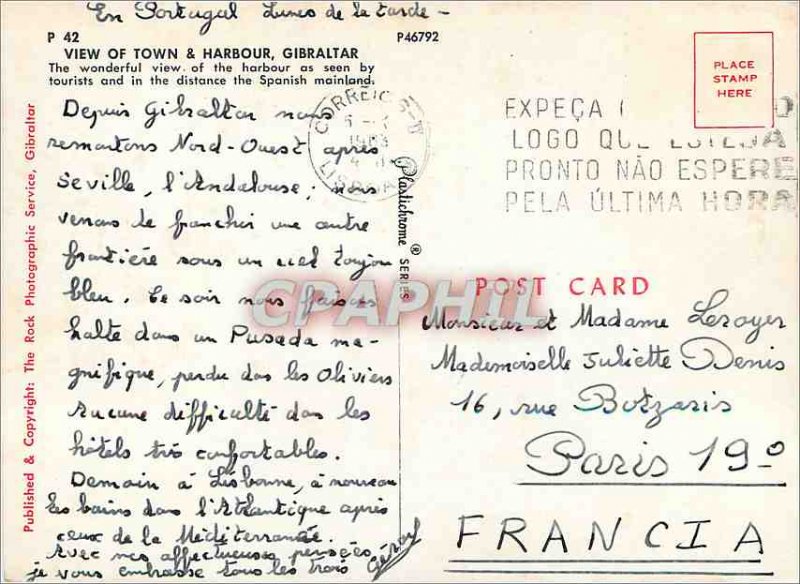 En Portugal Lunes de la tarde -
P 42
P46792
VIEW OF TOWN & HARBOUR, GIBRALTAR
The wonderful view of the harbour as seen by
tourists and in the distance the Spanish mainland.
PLACE
STAMP
HERE
CORREIOS
LISBOA
EXPEÇA
LOGO QUE ESTEJA
PRONTO NÃO ESPERE
PELA ÚLTIMA HORA
Published & Copyright: The Rock Photographic Service, Gibraltar
Plastichrome ® SERIES
Depuis Gibraltar nous
remontons Nord-Ouest après
Seville, l'Andalouse; nous
venons de franchir une autre
frontière sous un ciel toujou
bleu. Ce soir nous faisons
halte dans un Pusada ma-
gnifique, perdu dans les Oliviers
Aucune difficulté dans les
hôtels très confortables.
Demain à Lisbonne, à nouveau
les bains dans l'Atlantique après
ceux de la Méditerranée.
Avec nos affectueuses pensées
je vous embrasse tous les trois
CPAPHIL
POST CARD
Monsieur et Madame Leroyer
Mademoiselle Juliette Denis
16, rue Botzaris
Paris 19°
FRANCIA